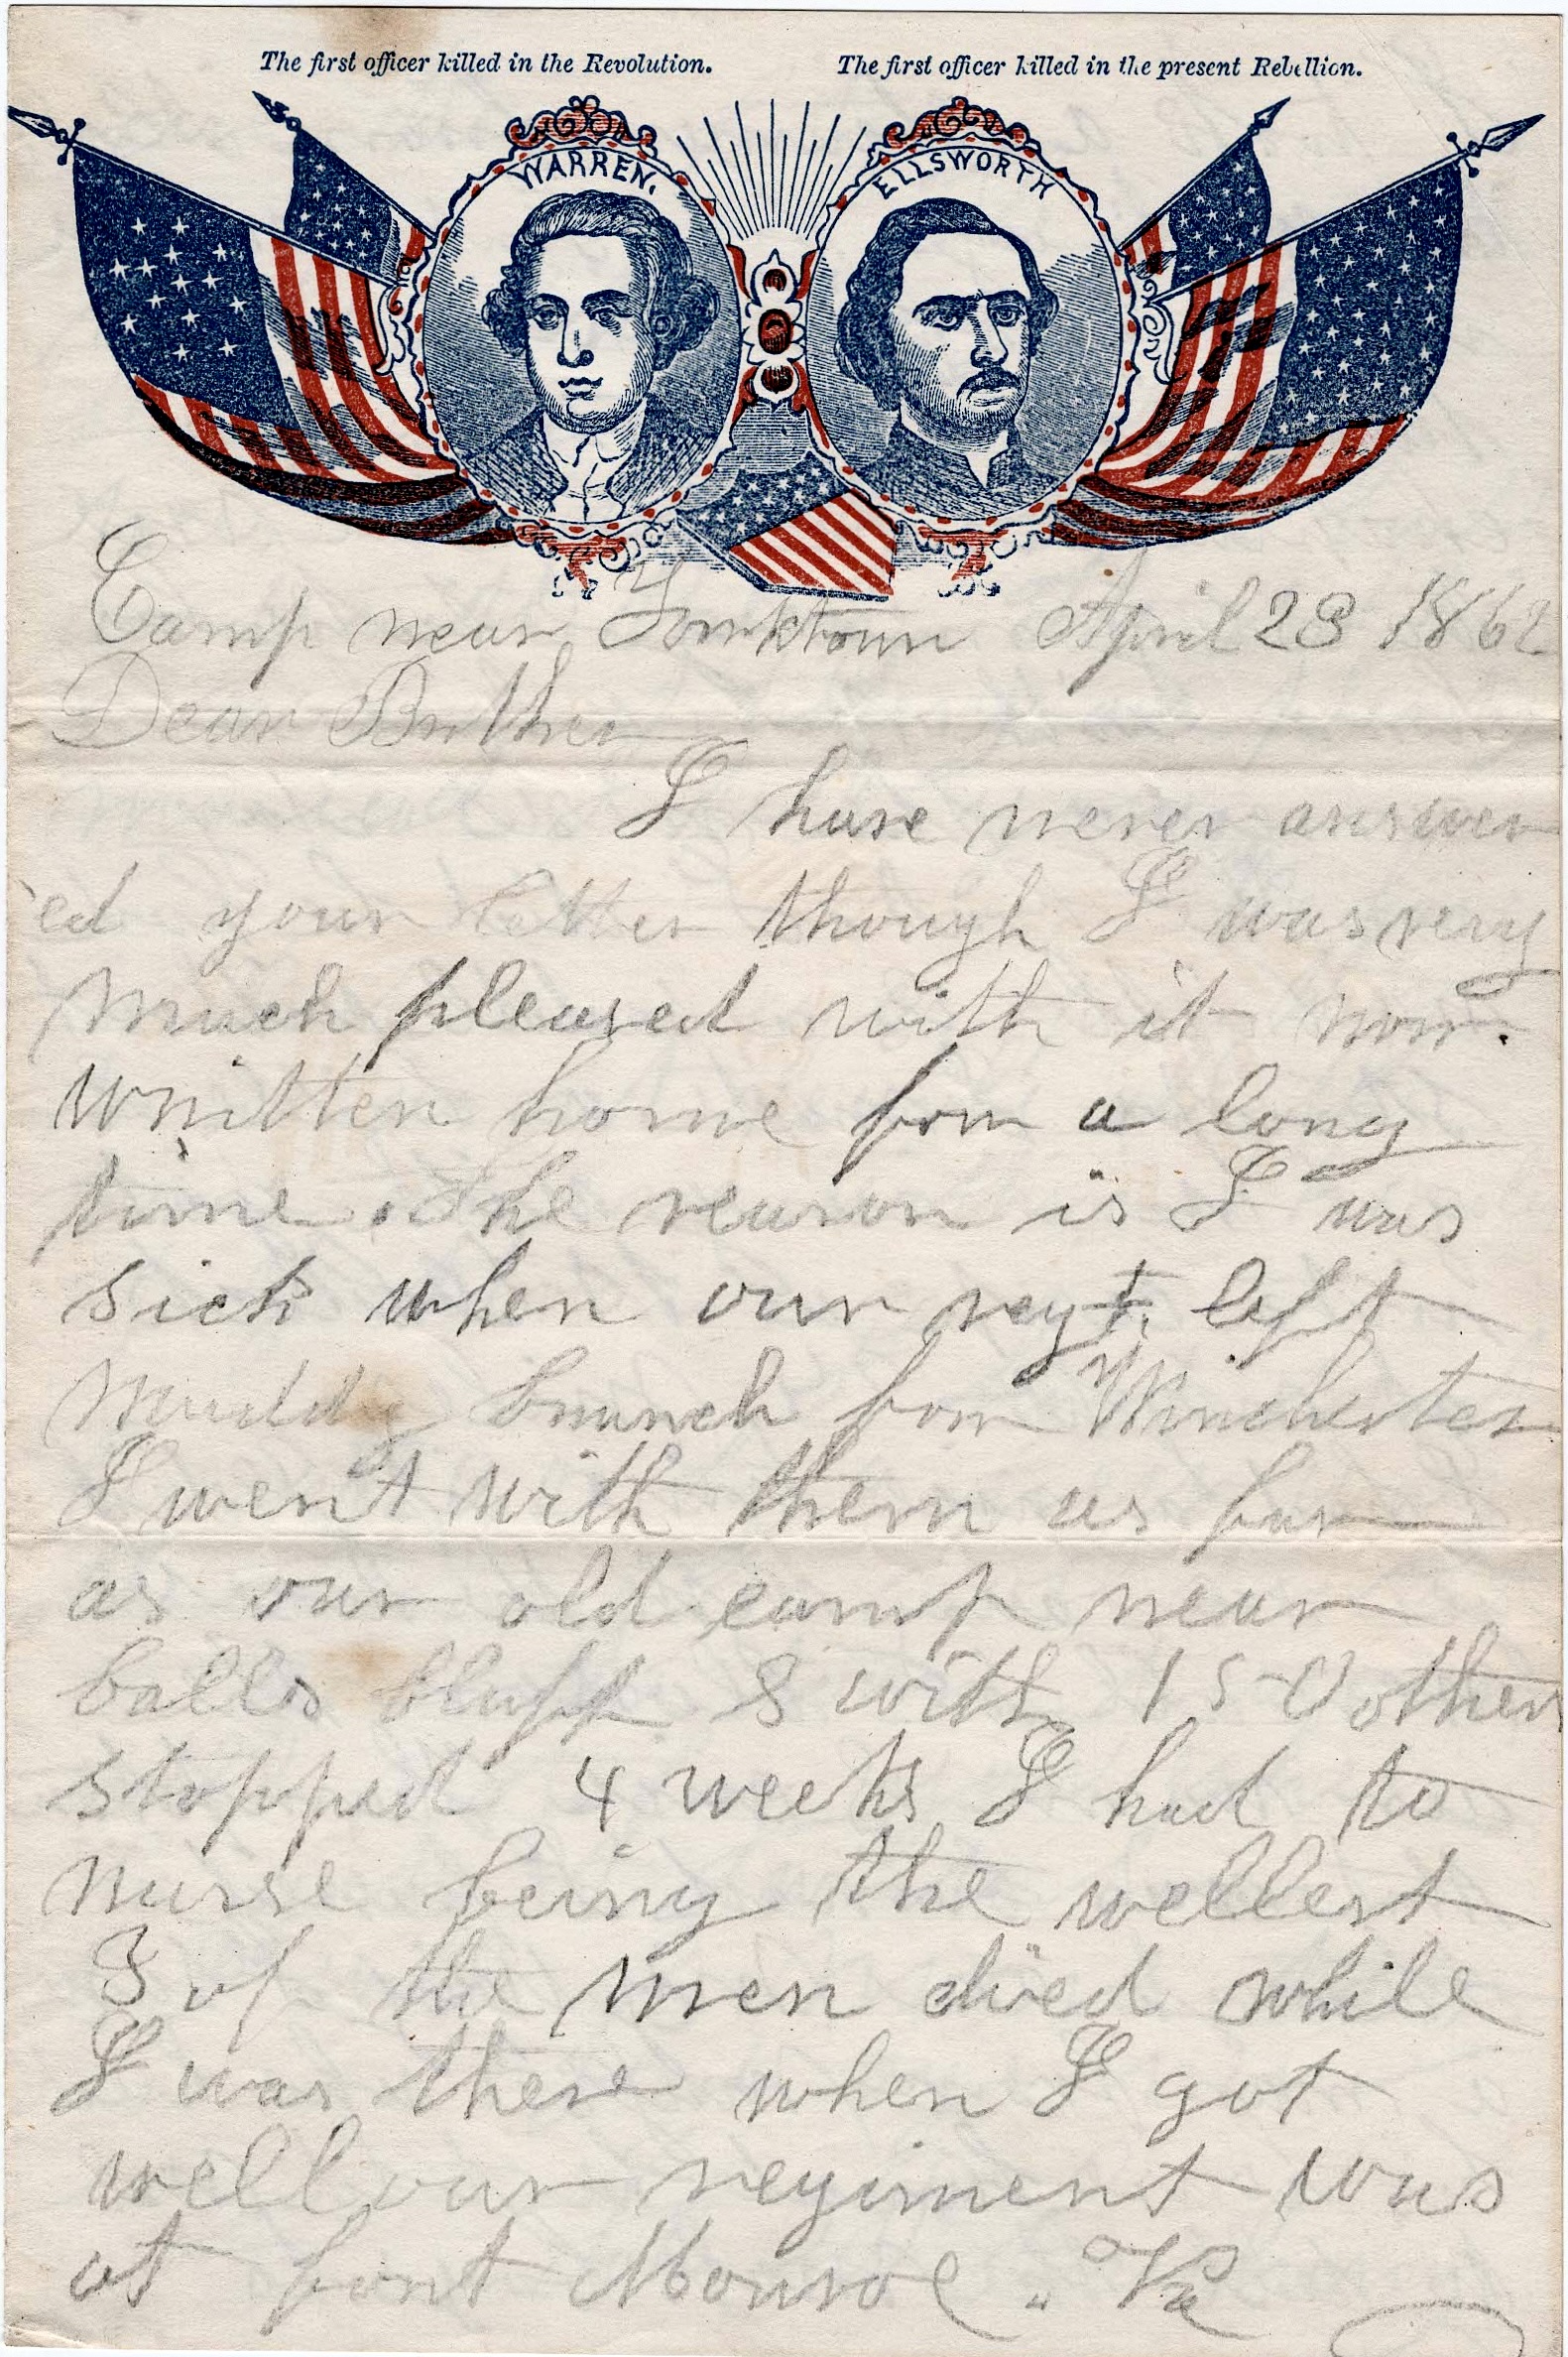 The first officer killed in the Revolution. The first officer killed in the present Rebellion.
WARREN. ELLSWORTH
Camp near Yorktown April 28 1862
Dear Brother
I have never answer
ed your letter though I was very
much pleased with it nor.
written home for a long
time. The reason is I was
sick when our regt. left
muddy branch for Winchester
I went with them as far
as our old camp near
balls bluff & with 150 other
stopped 4 weeks I had to
nurse being the wellest
3 of the men died while
I was there when I got
well our regiment was
at fort Monroe. Va